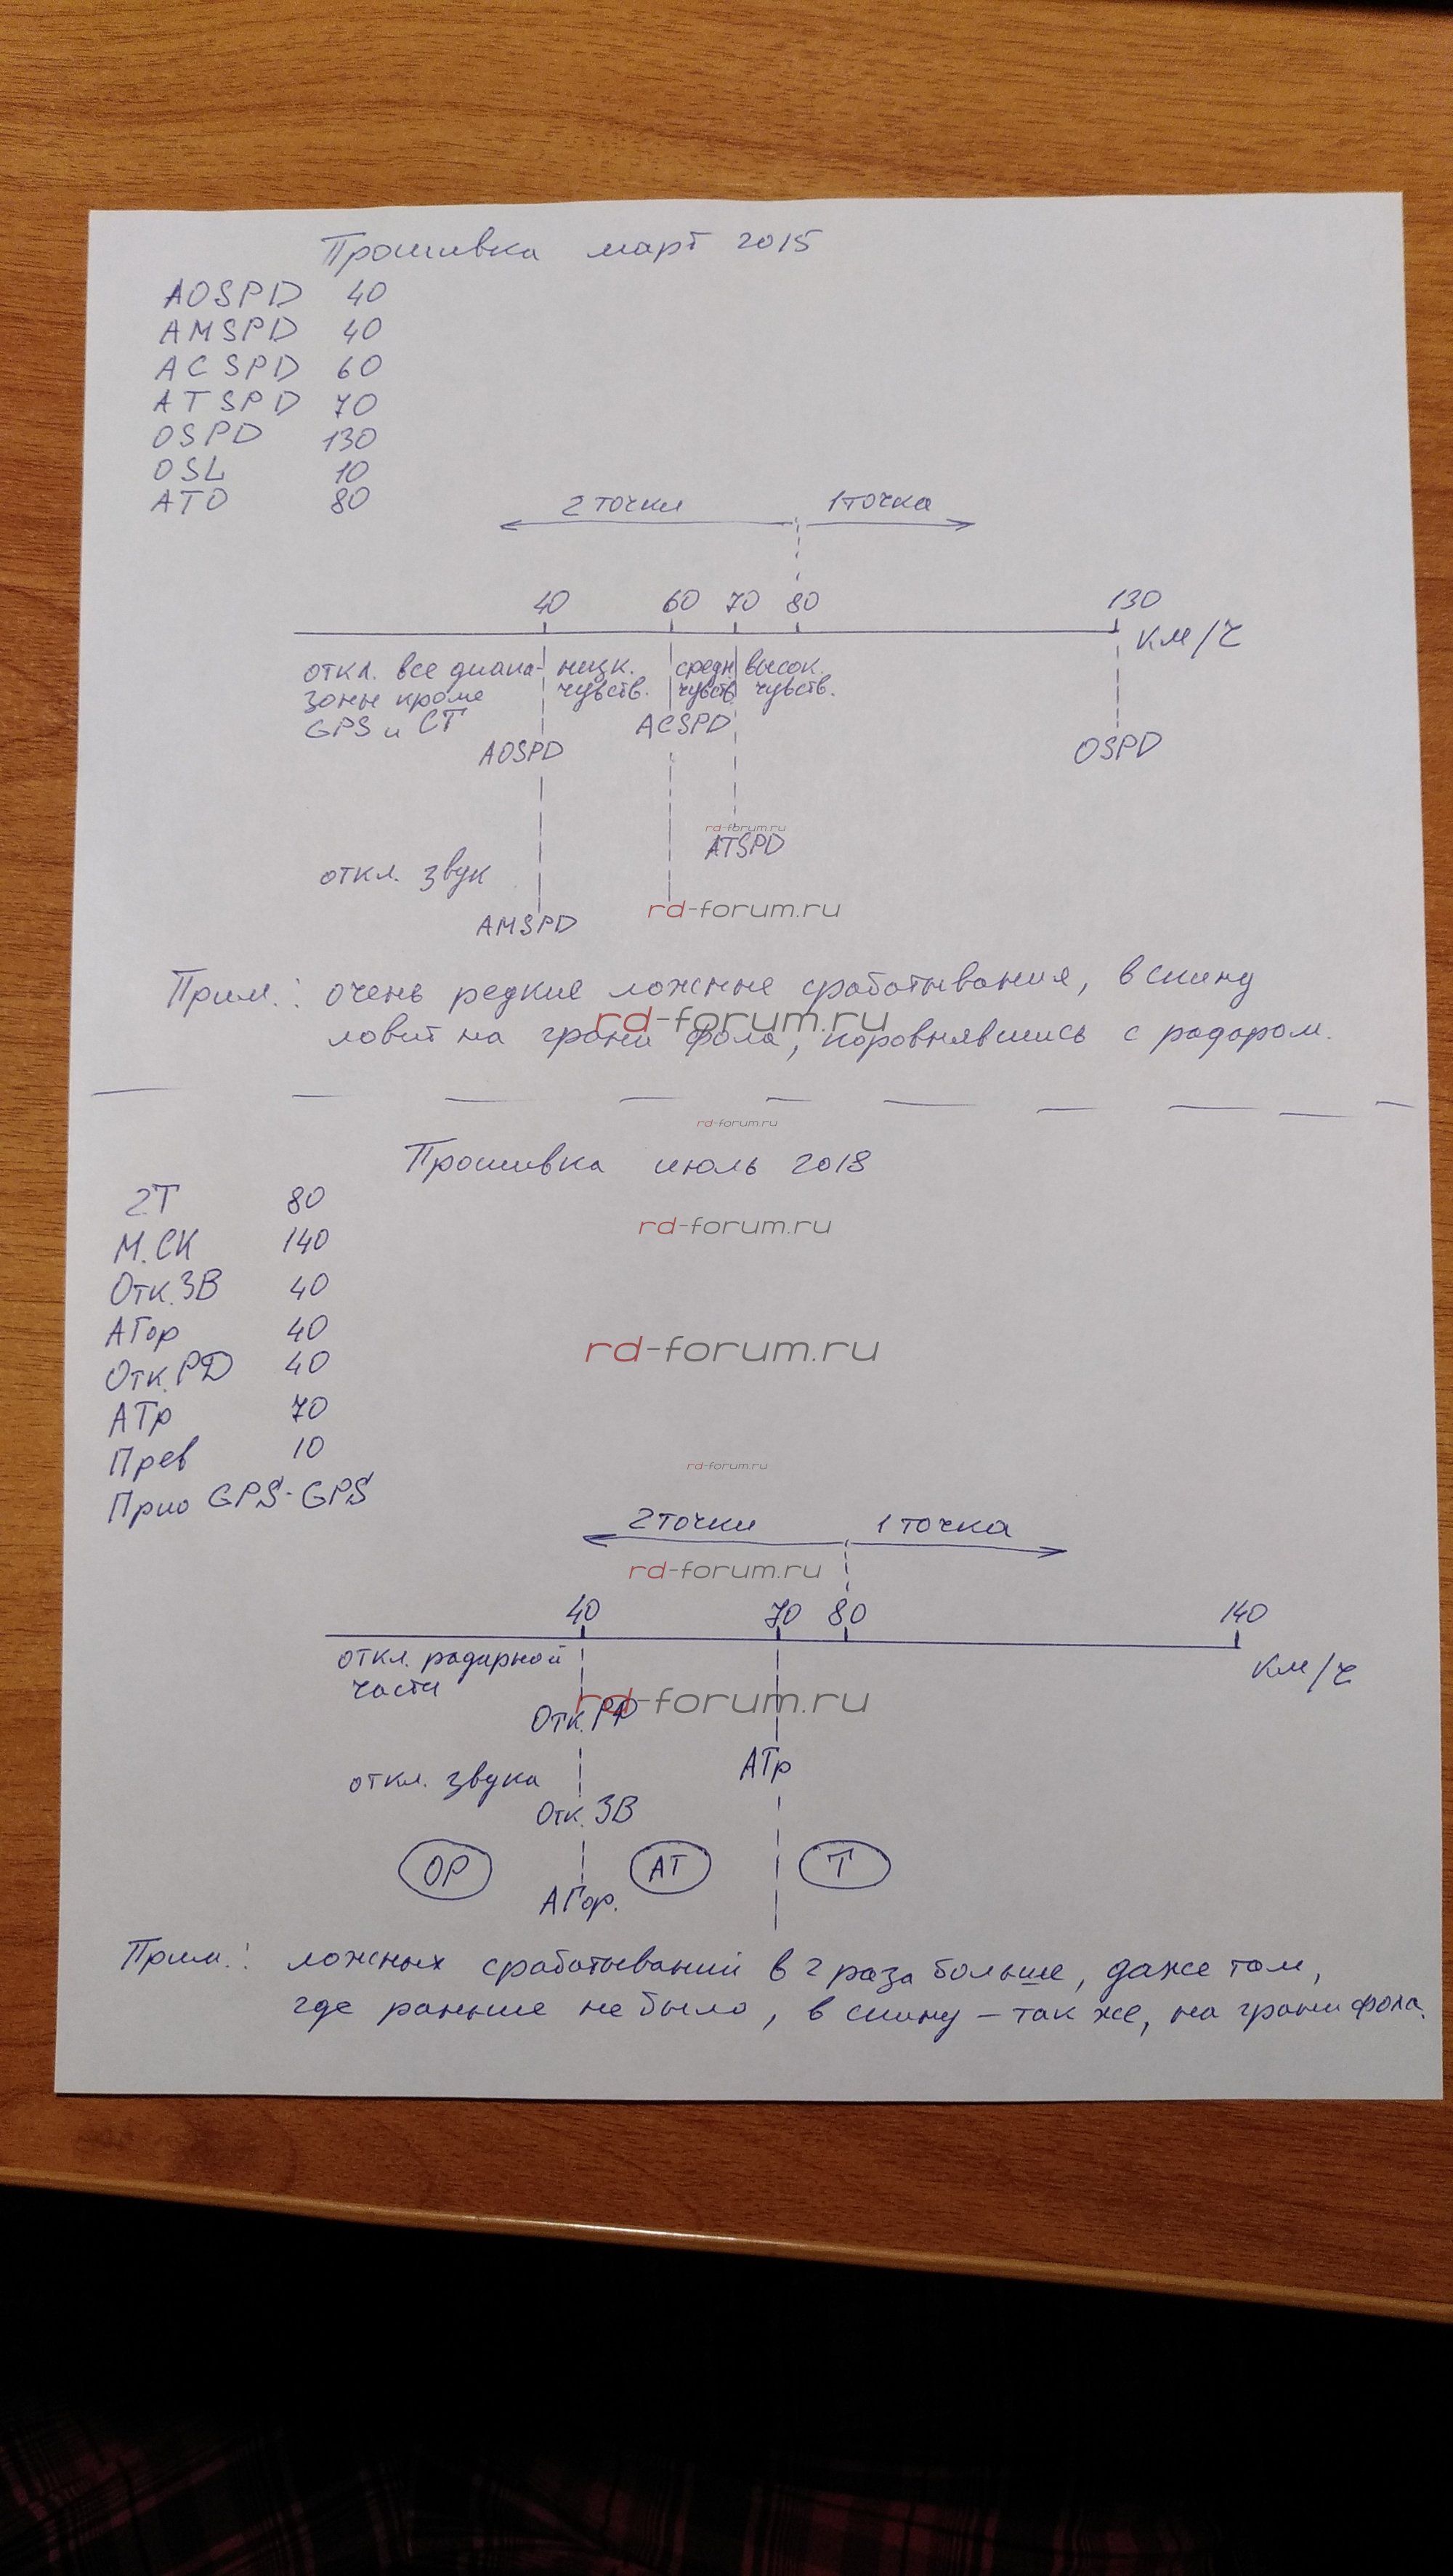 Прошивка март 2015
AOSPD 40
AMSPD 40
ACSPD 60
ATSPD 70
OSPD 130
OSL 10
ATO 80
2 точки 1 точка
40 60 70 80 130
км/ч
откл. все диапа- низк. средн. высок.
зоны кроме чувств. чувств. чувств.
GPS и СТ ACSPD
AOSPD OSPD
rd-forum.ru
ATSPD
откл. звук
rd-forum.ru
AMSPD
Прим.: очень редкие ложные срабатывания, в спину
rd-forum.ru
ловит на грани фола, поровнявшись с радаром.
rd-forum.ru
Прошивка июль 2018
2Т 80
rd-forum.ru
М.СК 140
Отк.ЗВ 40
АГор 40
rd-forum.ru
Отк.РД 40
АТр 70
Прев 10
rd-forum.ru
Прио GPS-GPS
2 точки 1 точка
rd-forum.ru
40 70 80 140
откл. радарной км/ч
части
rd-forum.ru
Отк.РД
АТр
откл. звука
Отк.ЗВ
ОР АТ Т
АГор.
Прим.: ложных срабатываний в 2 раза больше, даже там,
где раньше не было, в спину – так же, на грани фола.